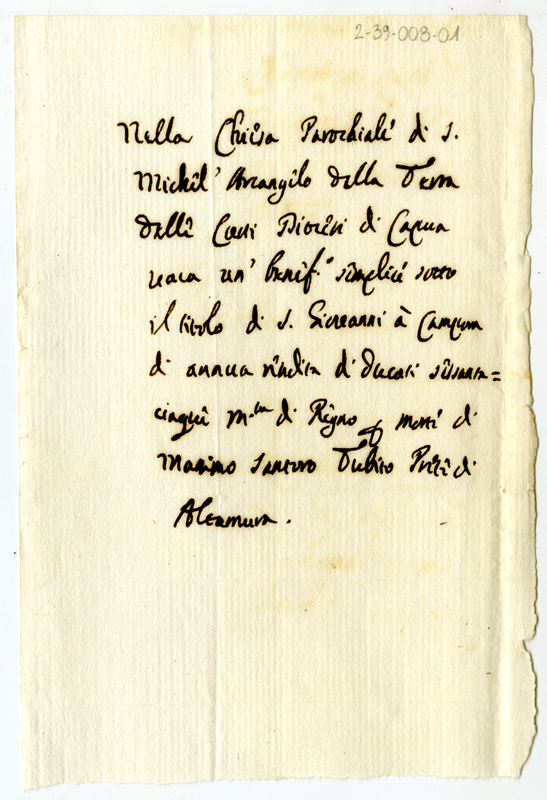 2-39-008-01
Nella Chiesa Parochiale di S.
Michel' Arcangelo della Terra
delli Curti Diocesi di Capua
vaca un' benef.o semplice sotto
il titolo di S. Giovanni à Campum
di annua rendita di ducati sessanta=
cinque m.ta di Regno p morte di
Marino Santoro Prete di
Altamura.